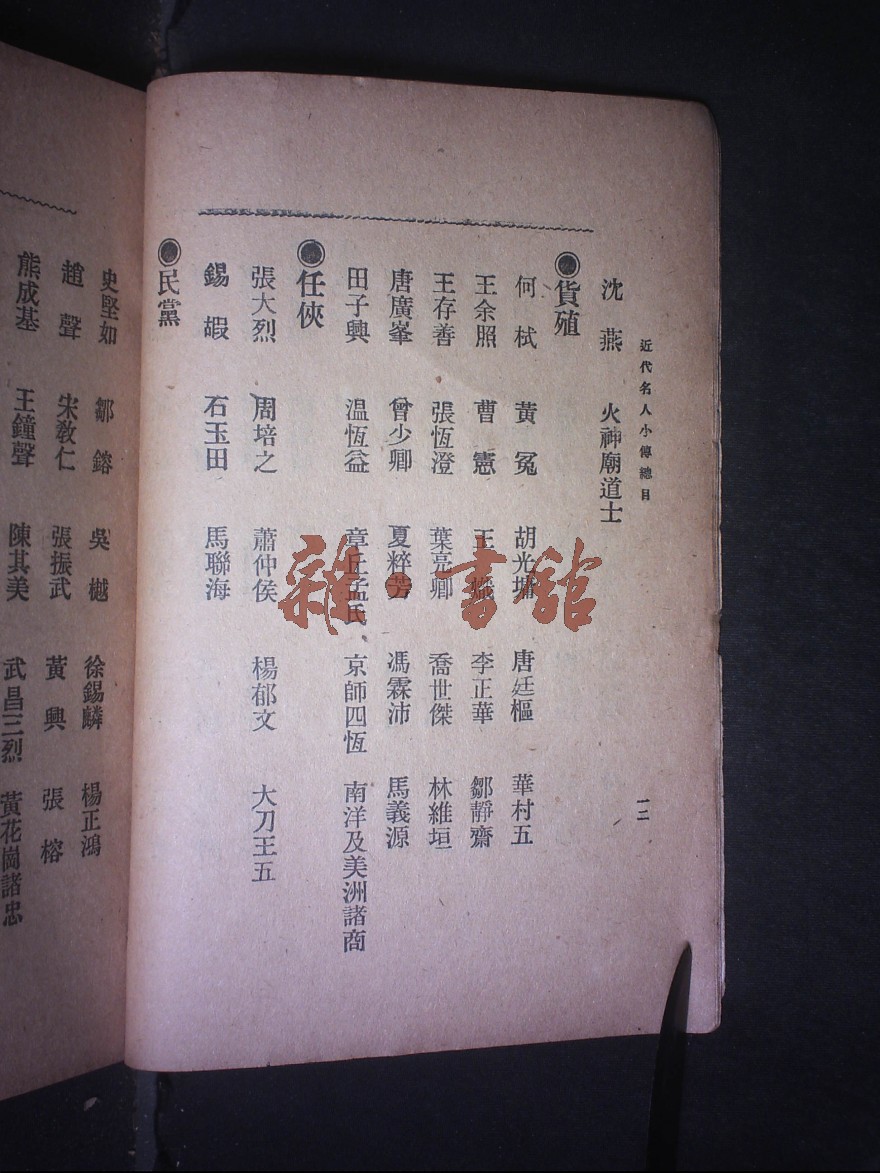 近代名人小傳總目
一二
沈燕 火神廟道士
◉貨殖
何栻 黃冤 胡光墉 唐廷樞 華村五
王余照 曹憲 王熾 李正華 鄒靜齋
王存善 張恆澄 葉亮卿 喬世傑 林維垣
唐廣峯 曾少卿 夏粹芳 馮霖沛 馬義源
田子興 温恆益 章丘孟氏 京師四恆 南洋及美洲諸商
◉任俠
張大烈 周培之 蕭仲侯 楊郁文 大刀王五
錫嘏 石玉田 馬聯海
◉民黨
史堅如 鄒鎔 吳樾 徐錫麟 楊正鴻
趙聲 宋敎仁 張振武 黃興 張榕
熊成基 王鐘聲 陳其美 武昌三烈 黃花崗諸忠
雜·書舘